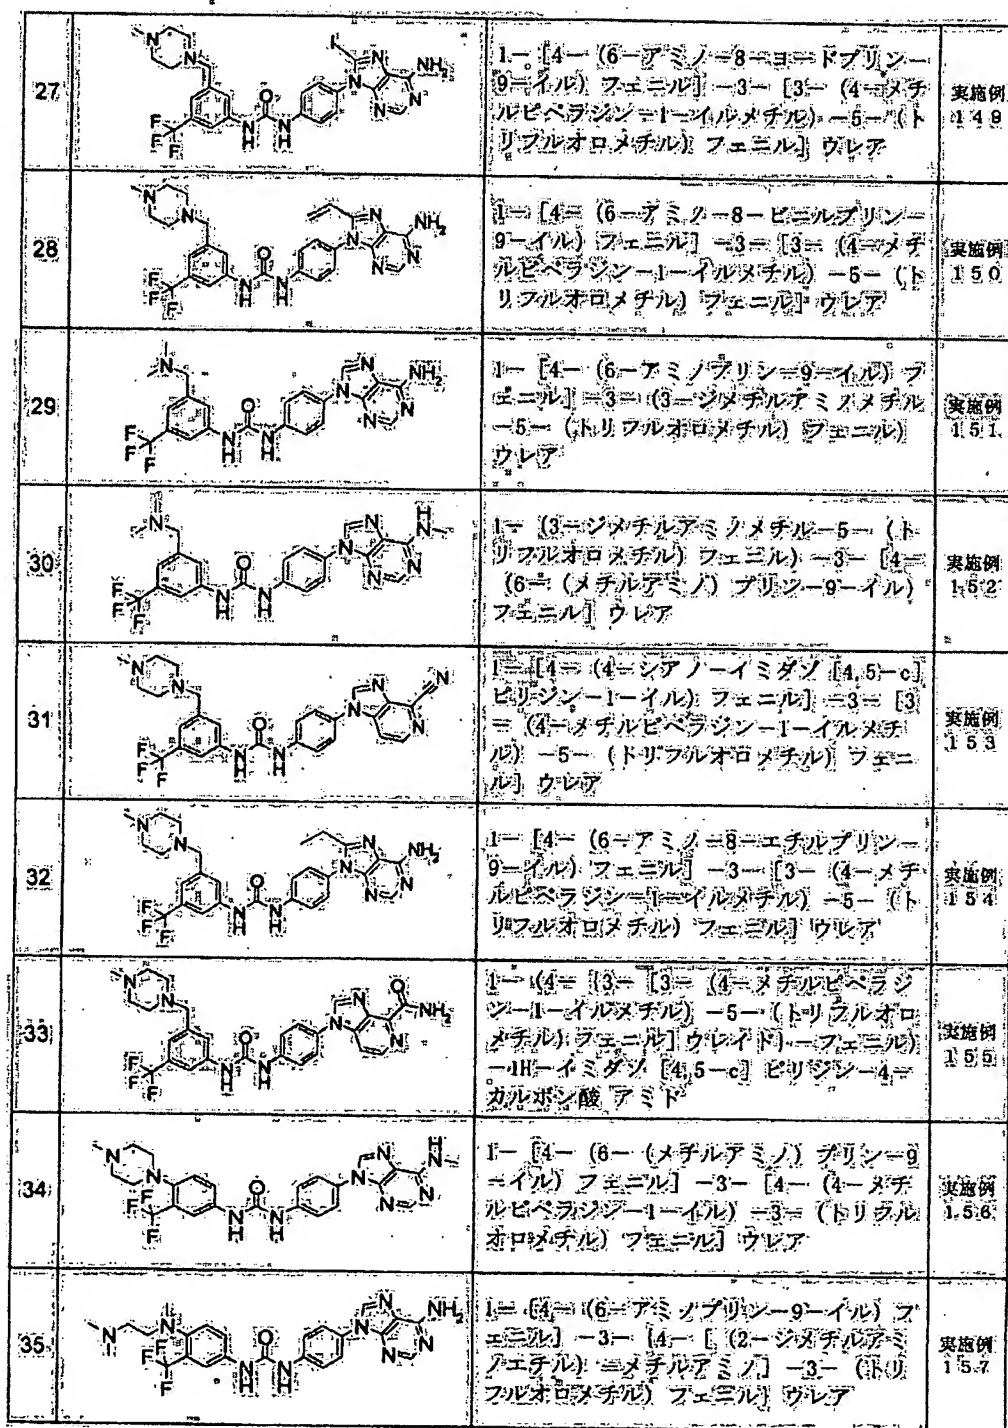 27
1-[4-(6-アミノ-8-ヨードプリン-
9-イル)フェニル]-3-[3-(4-メチ
ルピペラジン-1-イルメチル)-5-(ト
リフルオロメチル)フェニル]ウレア
実施例
149
28
1-[4-(6-アミノ-8-ビニルプリン-
9-イル)フェニル]-3-[3-(4-メチ
ルピペラジン-1-イルメチル)-5-(ト
リフルオロメチル)フェニル]ウレア
実施例
150
29
1-[4-(6-アミノプリン-9-イル)フ
ェニル]-3-(3-ジメチルアミノメチル
-5-(トリフルオロメチル)フェニル)
ウレア
実施例
151
30
1-(3-ジメチルアミノメチル-5-(ト
リフルオロメチル)フェニル)-3-[4-
(6-(メチルアミノ)プリン-9-イル)
フェニル]ウレア
実施例
152
31
1-[4-(4-シアノ-イミダゾ[4,5-c]
ピリジン-1-イル)フェニル]-3-[3
-(4-メチルピペラジン-1-イルメチ
ル)-5-(トリフルオロメチル)フェニ
ル]ウレア
実施例
153
32
1-[4-(6-アミノ-8-エチルプリン-
9-イル)フェニル]-3-[3-(4-メチ
ルピペラジン-1-イルメチル)-5-(ト
リフルオロメチル)フェニル]ウレア
実施例
154
33
1-(4-{3-[3-(4-メチルピペラジ
ン-1-イルメチル)-5-(トリフルオロ
メチル)フェニル]ウレイド}-フェニル)
-1H-イミダゾ[4,5-c]ピリジン-4-
カルボン酸 アミド
実施例
155
34
1-[4-(6-(メチルアミノ)プリン-9
-イル)フェニル]-3-[4-(4-メチ
ルピペラジン-1-イル)-3-(トリフル
オロメチル)フェニル]ウレア
実施例
156
35
1-[4-(6-アミノプリン-9-イル)フ
ェニル]-3-{4-[(2-ジメチルアミ
ノエチル)-メチルアミノ]-3-(トリ
フルオロメチル)フェニル}ウレア
実施例
157